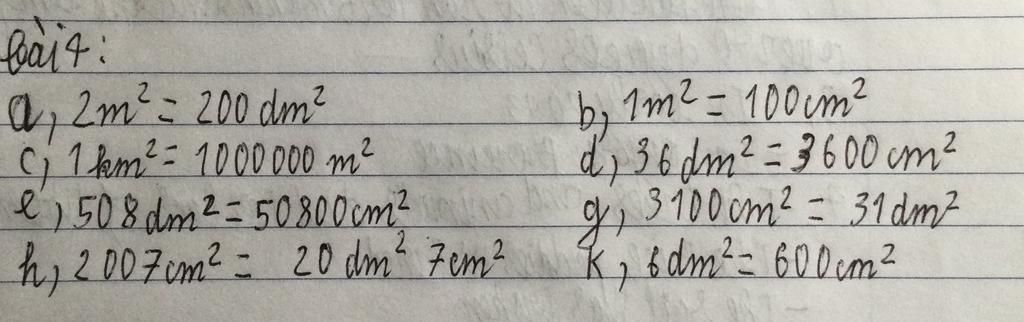 bài 4:
a, 2m² = 200 dm² b, 1m² = 100cm²
c, 1 km² = 1000000 m² d, 36 dm² = 3600 cm²
e, 508dm² = 50800cm² g, 3100cm² = 31dm²
h, 2007cm² = 20 dm² 7cm² k, 6dm² = 600cm²